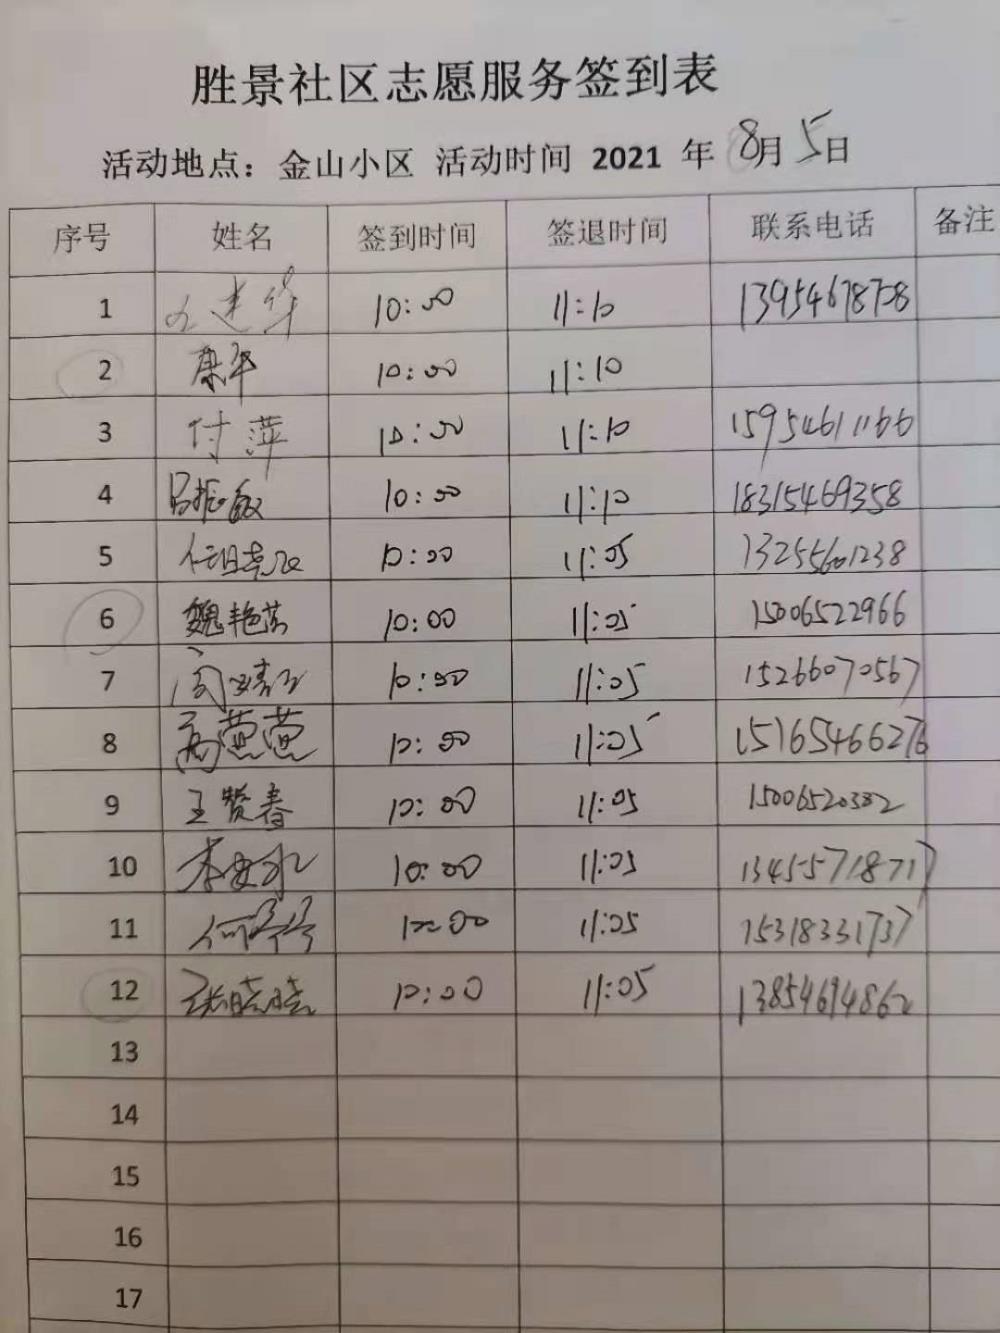 胜景社区志愿服务签到表
活动地点：金山小区 活动时间 2021 年 8月5日
序号 姓名 签到时间 签退时间 联系电话 备注
1 建华 10:00 11:10 13954678708
2 康华 10:00 11:10
3 付萍 10:00 11:10 15954611166
4 10:00 11:10 18315469358
5 10:00 11:05 13255601238
6 魏艳芳 10:00 11:05 15006522966
7 10:00 11:05 15266070567
8 高萱萱 10:00 11:05 15165466276
9 王赞春 10:00 11:05 15006520302
10 10:00 11:05 13455718717
11 何婷婷 10:00 11:05 15318331737
12 张晓晓 10:00 11:05 13854694862
13
14
15
16
17